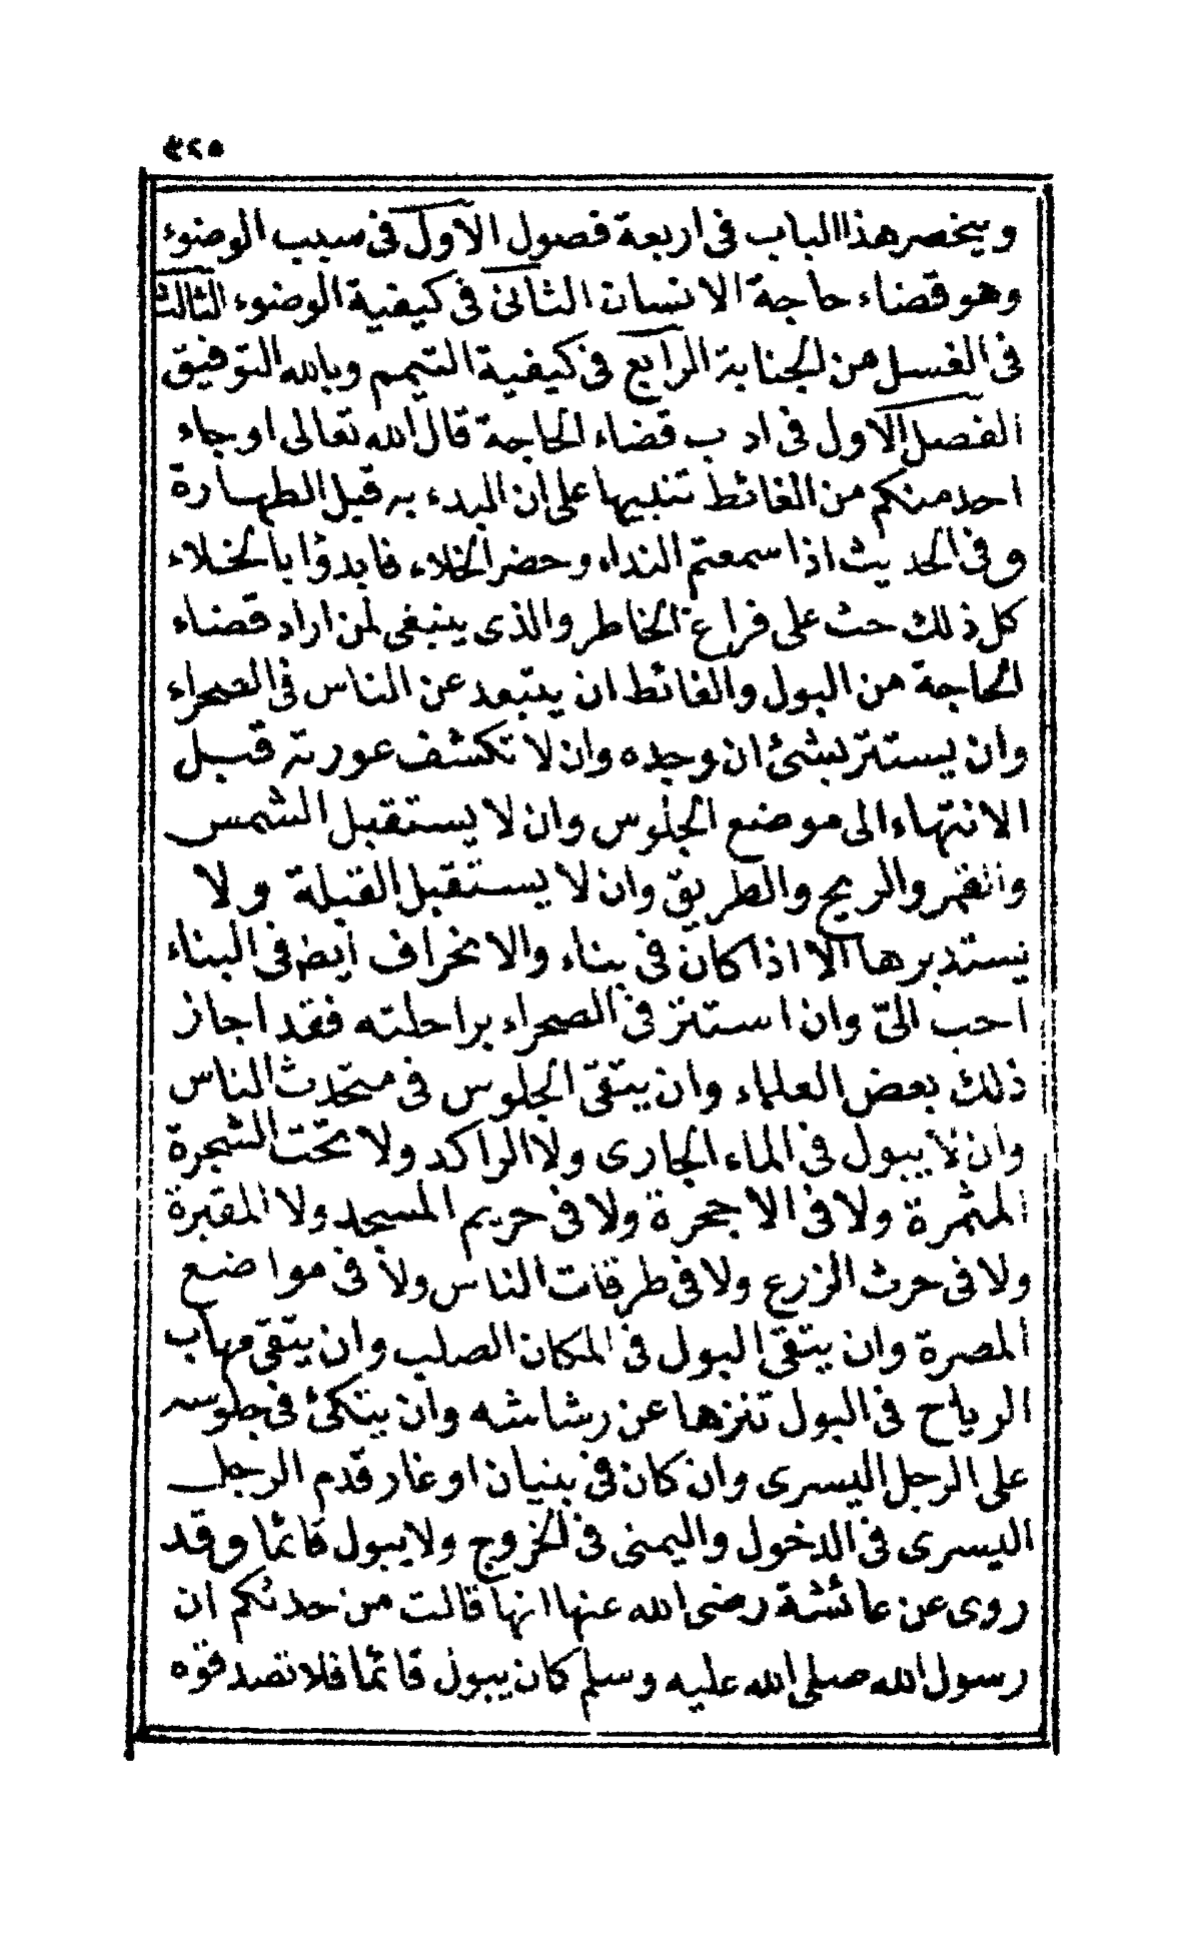 ٣٢٥
وينحصر هذا الباب فى اربعة فصول الاول فى سبب الوضوء
وهو قضاء حاجة الانسان الثانى فى كيفية الوضوء الثالث
فى الغسل من الجنابة الرابع فى كيفية التيمم وبالله التوفيق
الفصل الاول فى ادب قضاء الحاجة قال الله تعالى او جاء
احد منكم من الغائط تنبيها على ان البدء به قبل الطهارة
وفى الحديث اذا سمعتم النداء وحضر الخلاء فابدؤا بالخلاء
كل ذلك حث على فراغ الخاطر والذى ينبغى لمن اراد قضاء
الحاجة من البول والغائط ان يتبعد عن الناس فى الصحراء
وان يستتر بشئ ان وجده وان لا تكشف عورته قبل
الانتهاء الى موضع الجلوس وان لا يستقبل الشمس
والقمر والريح والطريق وان لا يستقبل القبلة ولا
يستدبرها الا اذا كان فى بناء والانحراف أيض فى البناء
احب الىّ وان استتر فى الصحراء براحلته فقد اجاز
ذلك بعض العلماء وان يتقى الجلوس فى متحدث الناس
وان لا يبول فى الماء الجارى ولا الراكد ولا تحت الشجرة
المثمرة ولا فى الاجحرة ولا فى حريم المسجد ولا المقبرة
ولا فى حرث الزرع ولا فى طرقات الناس ولا فى مواضع
المصرة وان يتقى البول فى المكان الصلب وان يتقى مهاب
الرياح فى البول تنزها عن رشاشه وان يتكئ فى جلوسه
على الرجل اليسرى وان كان فى بنيان او غار قدم الرجل
اليسرى فى الدخول واليمنى فى الخروج ولا يبول قائما وقد
روى عن عائشة رضى الله عنها انها قالت من حدثكم ان
رسول الله صلى الله عليه وسلم كان يبول قائما فلا تصدقوه